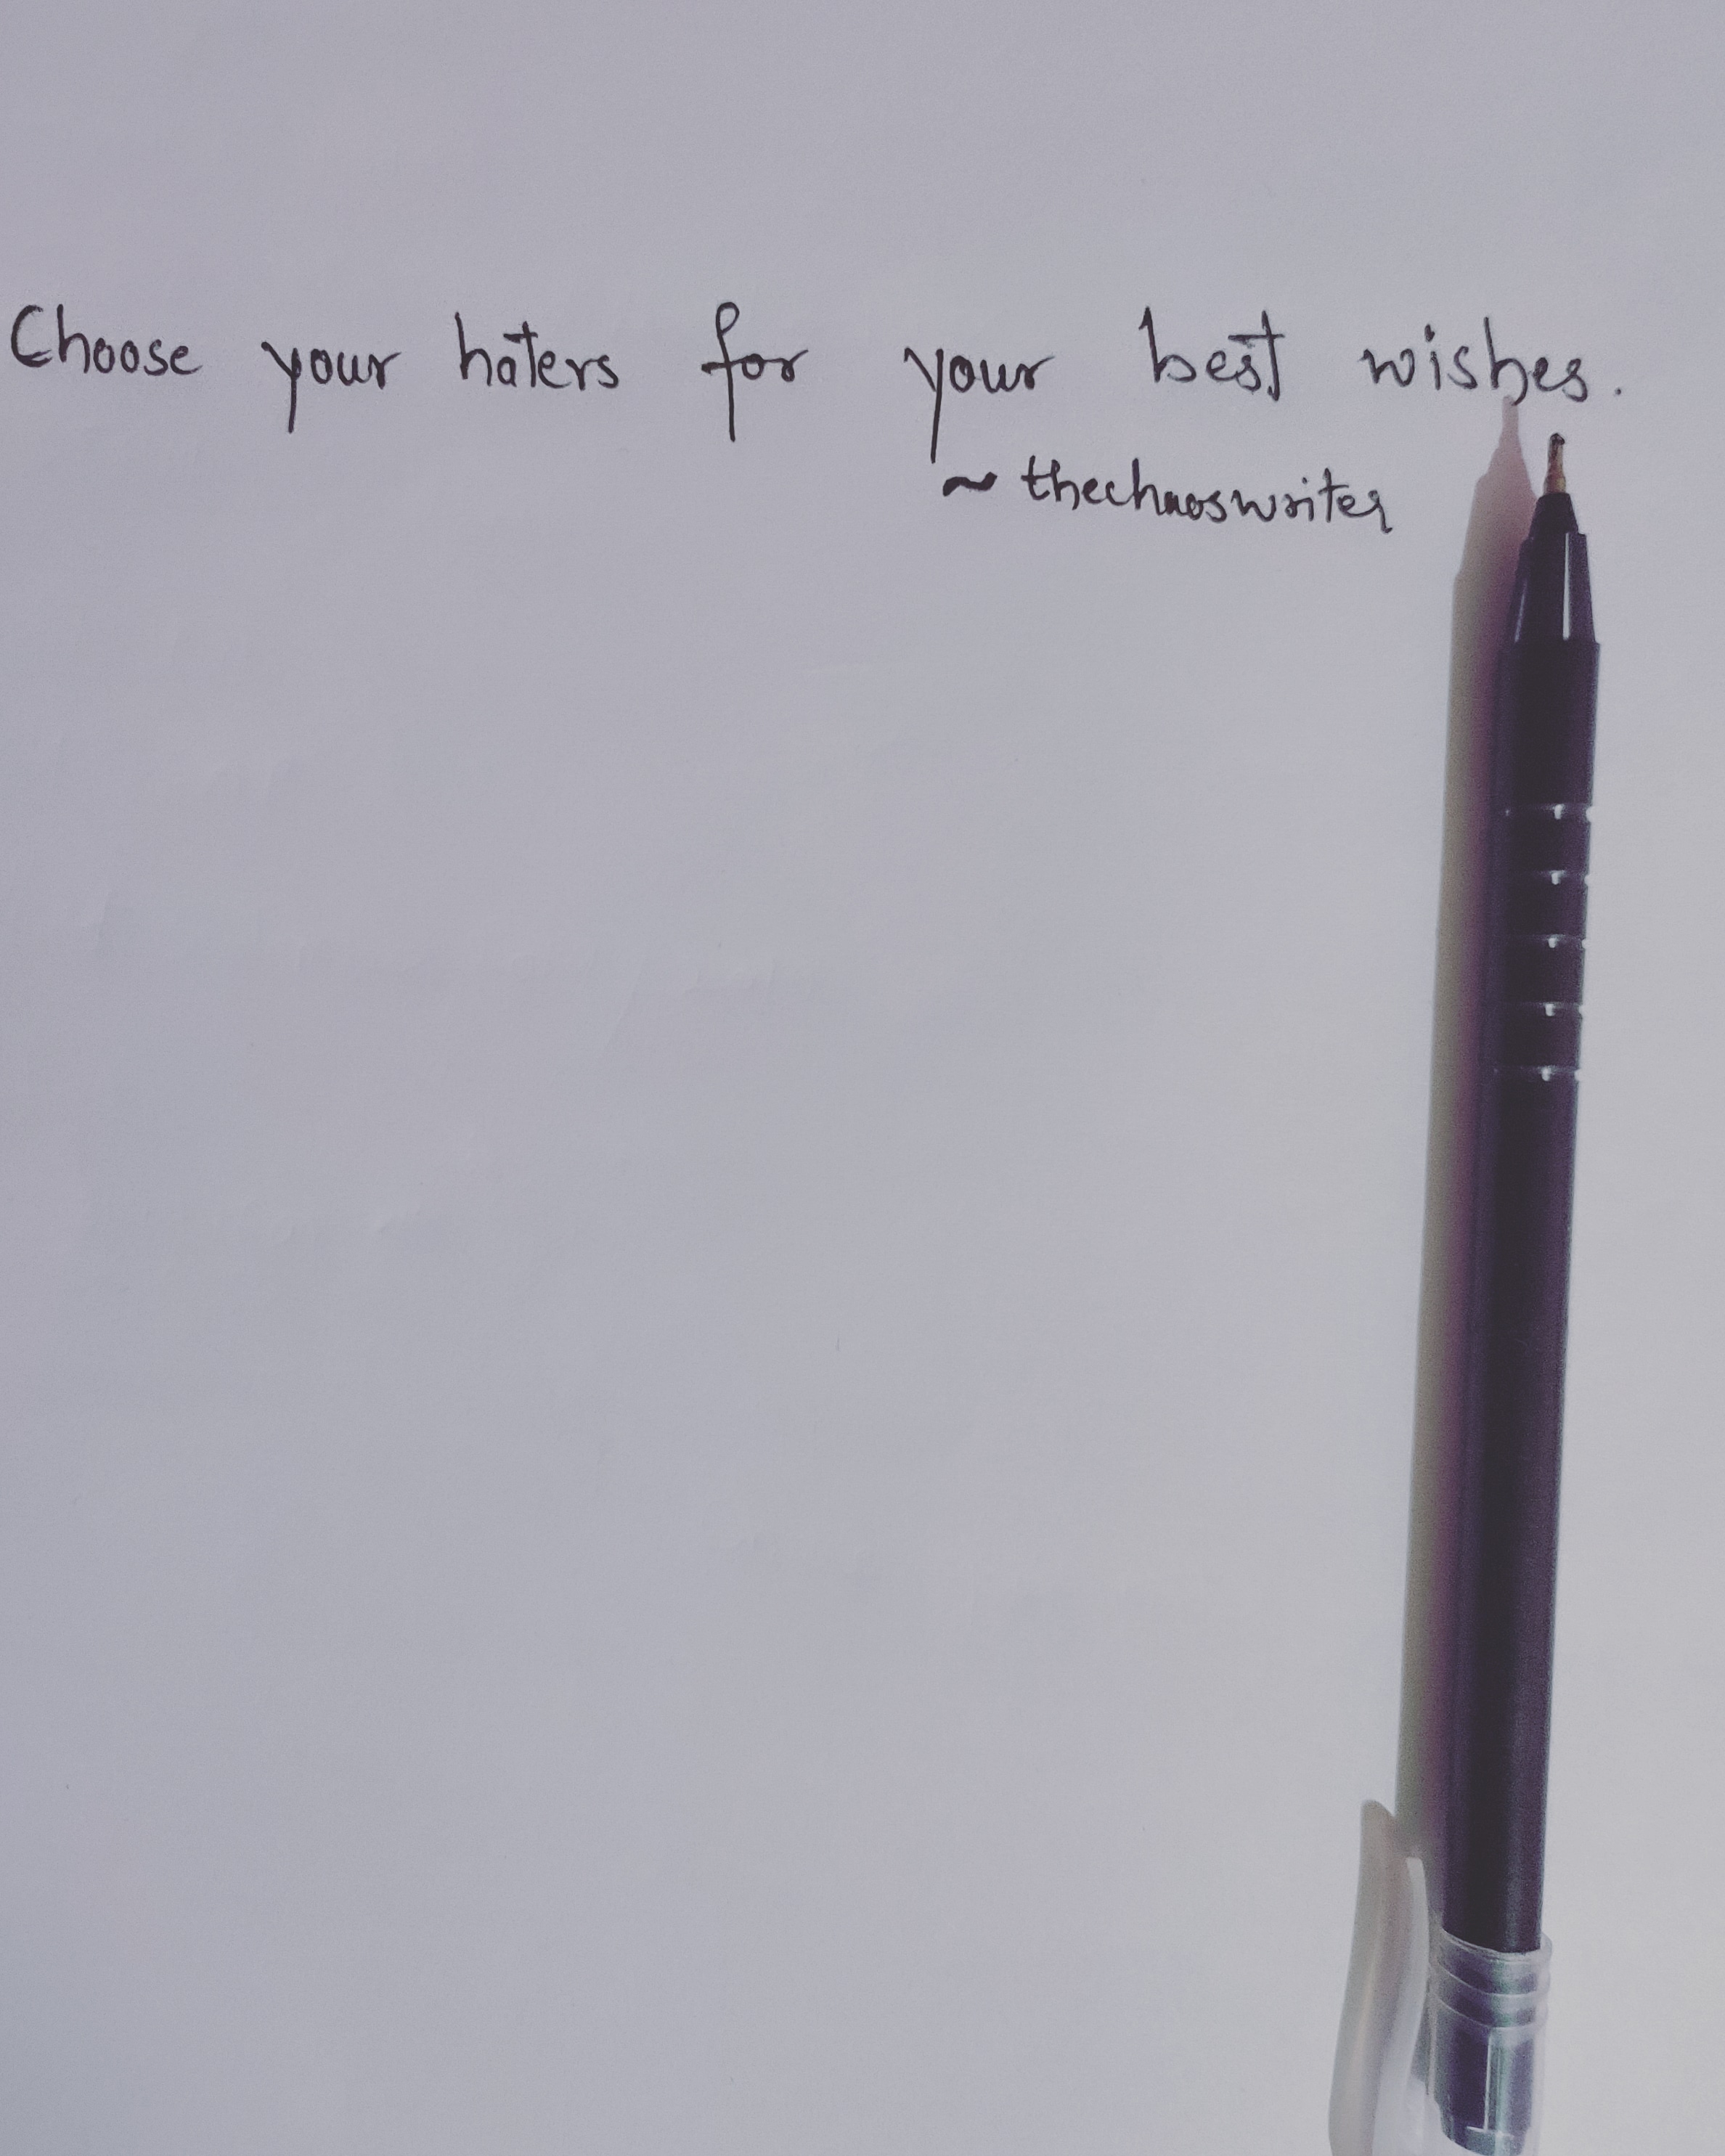 Choose your haters for your best wishes.
~ thechaoswriter